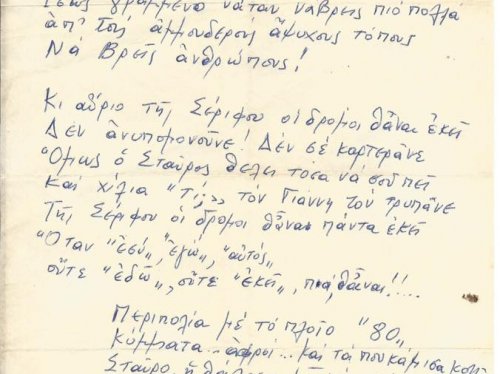 Ἴσως γραμμένο νἆταν νἄβρεῖς πιό πολλά
ἀπ' τούς ἀμμουδερούς ἄψυχους τόπους
Νά βρεῖς ἀνθρώπους!
Κι αὔριο τῆς Σέριφου οἱ δρόμοι θἆναι ἐκεῖ
Δέν ἀνυπομονοῦνε! Δέν σέ καρτερᾶνε
Ὅμως ὁ Σταῦρος θέλει τόσα νά σοῦ πεῖ
Καί χίλια "Τί;,, τόν Γιάννη τόν τρυπᾶνε
Τῆς Σέριφου οἱ δρόμοι θἆναι πάντα ἐκεῖ
Ὅταν "ἐσύ,, "ἐγώ,, "αὐτός,,
οὔτε "ἐδῶ,, οὔτε "ἐκεῖ,, πιά, θἆναι!!...
Περιπολία μέ τό πλοῖο "80,,
κύμματα... ἀφροί... καί τά πουκάμισα
Σταῦρο